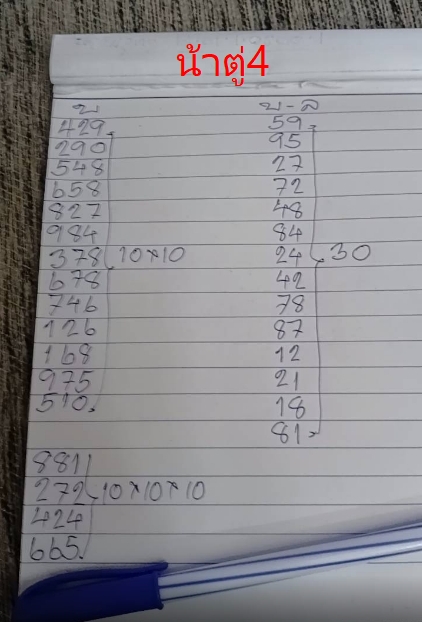 น้าตู่4
บ
429
290
548
658
827
984
378 10×10
678
746
126
168
975
510
881
272 10×10×10
424
665
บ-ล
59
95
27
72
48
84
24 30
42
78
87
12
21
18
81